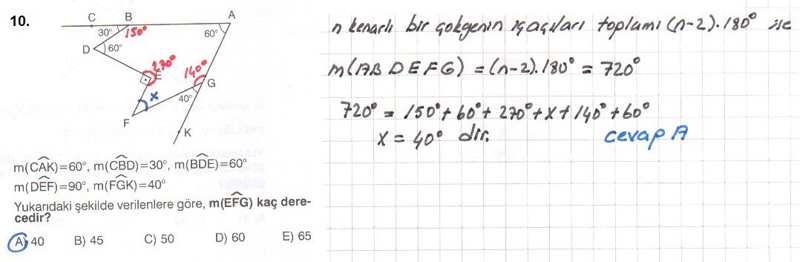 10.
C B A
30° 150° 60°
D 60°
270° E 140°
x 40° G
F
K
m(CAK)=60°, m(CBD)=30°, m(BDE)=60°
m(DEF)=90°, m(FGK)=40°
Yukarıdaki şekilde verilenlere göre, m(EFG) kaç dere-
cedir?
A) 40 B) 45 C) 50 D) 60 E) 65
n kenarlı bir çokgenin içaçıları toplamı (n-2).180° ise
m(ABDEFG) = (n-2).180° = 720°
720° = 150°+60°+270°+x+140°+60°
x = 40° dir. cevap A